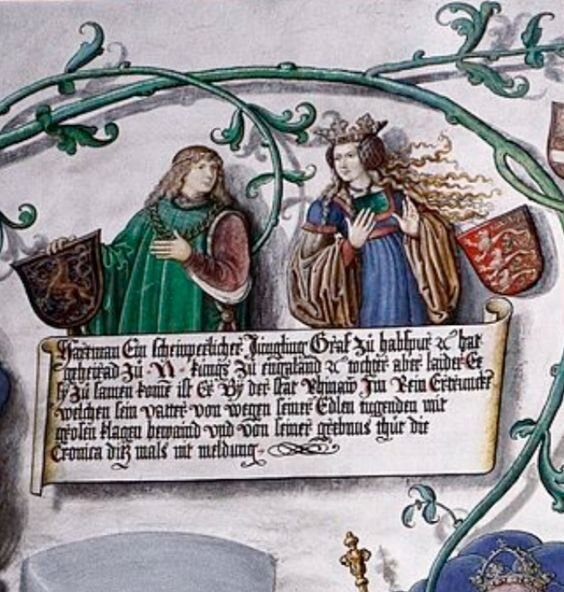 Hartman Ein scheinperlicher Jungling Graf zů habspur ꝛc hat
geheirad zů N. kunigs zů engeland ꝛc tochter aber laider Ee
sy zů samen kome ist Er By der stat Rhinaw Jm Rein Ertruncke
welchen sein vatter von wegen seiner Edlen tugenden mit
grosen klagen bewaind vnd von seiner grebnus thůt die
Cronica diz mals nit meldung